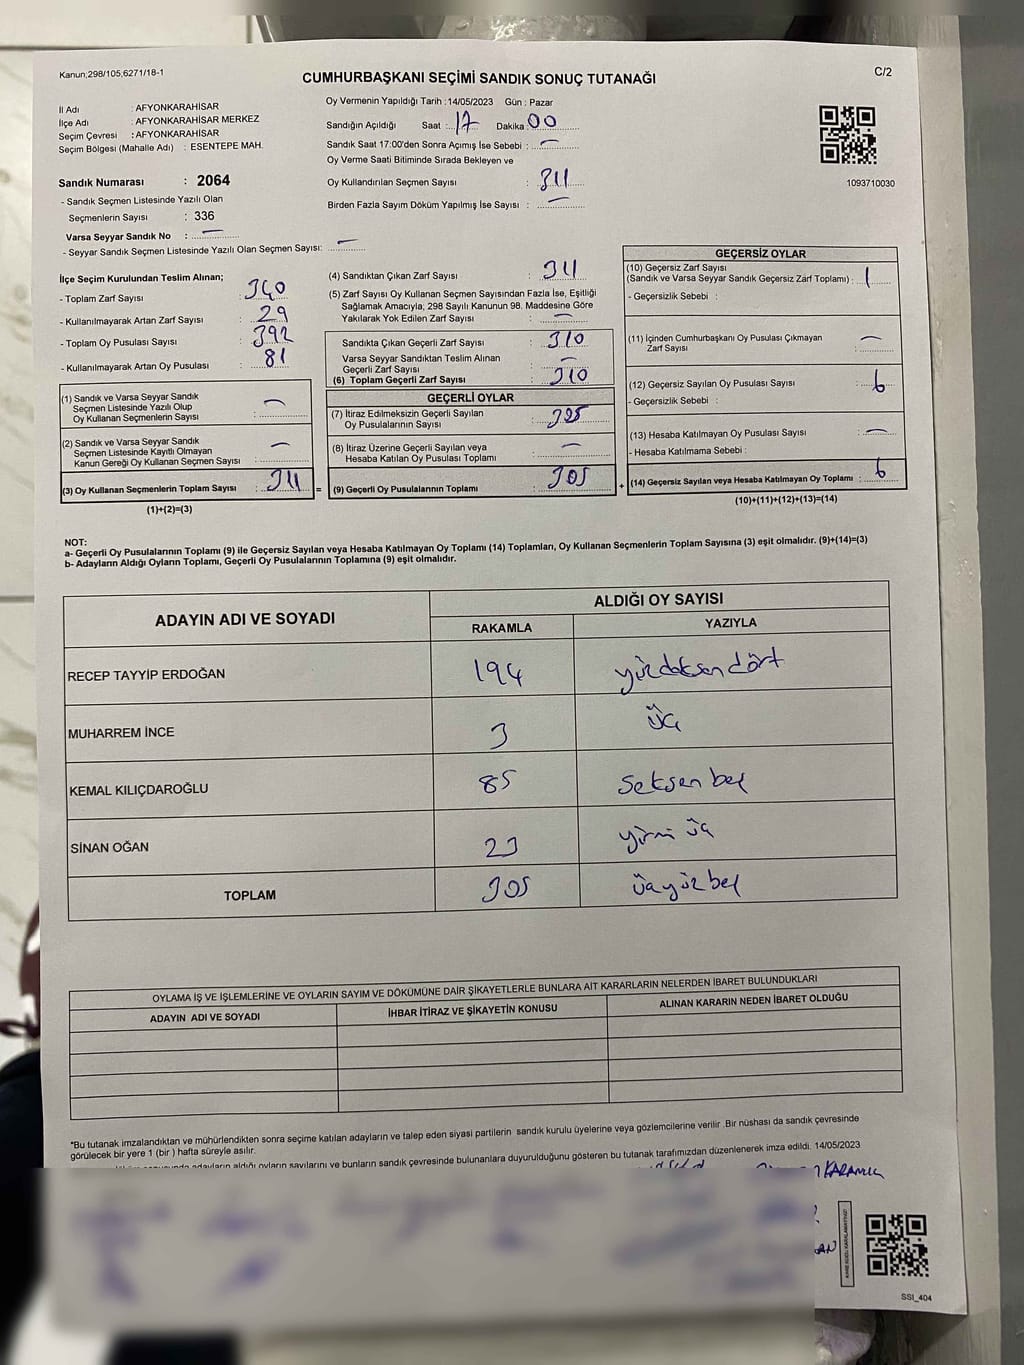 Kanun;298/105;6271/18-1
CUMHURBAŞKANI SEÇİMİ SANDIK SONUÇ TUTANAĞI
C/2
İl Adı : AFYONKARAHİSAR
İlçe Adı : AFYONKARAHİSAR MERKEZ
Seçim Çevresi : AFYONKARAHİSAR
Seçim Bölgesi (Mahalle Adı) : ESENTEPE MAH.
Oy Vermenin Yapıldığı Tarih : 14/05/2023 Gün : Pazar
Sandığın Açıldığı Saat : 17 Dakika : 00
Sandık Saat 17:00'den Sonra Açımış İse Sebebi : —
Oy Verme Saati Bitiminde Sırada Bekleyen ve
Oy Kullandırılan Seçmen Sayısı : 311
Birden Fazla Sayım Döküm Yapılmış İse Sayısı : —
1093710030
Sandık Numarası : 2064
- Sandık Seçmen Listesinde Yazılı Olan
Seçmenlerin Sayısı : 336
Varsa Seyyar Sandık No : —
- Seyyar Sandık Seçmen Listesinde Yazılı Olan Seçmen Sayısı: —
İlçe Seçim Kurulundan Teslim Alınan;
- Toplam Zarf Sayısı : 340
- Kullanılmayarak Artan Zarf Sayısı : 29
- Toplam Oy Pusulası Sayısı : 392
- Kullanılmayarak Artan Oy Pusulası : 81
(1) Sandık ve Varsa Seyyar Sandık
Seçmen Listesinde Yazılı Olup
Oy Kullanan Seçmenlerin Sayısı : —
(2) Sandık ve Varsa Seyyar Sandık
Seçmen Listesinde Kayıtlı Olmayan
Kanun Gereği Oy Kullanan Seçmen Sayısı : —
(3) Oy Kullanan Seçmenlerin Toplam Sayısı : 311 =
(1)+(2)=(3)
(4) Sandıktan Çıkan Zarf Sayısı : 311
(5) Zarf Sayısı Oy Kullanan Seçmen Sayısından Fazla İse, Eşitliği
Sağlamak Amacıyla; 298 Sayılı Kanunun 98. Maddesine Göre
Yakılarak Yok Edilen Zarf Sayısı : —
Sandıkta Çıkan Geçerli Zarf Sayısı : 310
Varsa Seyyar Sandıktan Teslim Alınan
Geçerli Zarf Sayısı : —
(6) Toplam Geçerli Zarf Sayısı : 310
GEÇERLİ OYLAR
(7) İtiraz Edilmeksizin Geçerli Sayılan
Oy Pusulalarının Sayısı : 305
(8) İtiraz Üzerine Geçerli Sayılan veya
Hesaba Katılan Oy Pusulası Toplamı : —
(9) Geçerli Oy Pusulalarının Toplamı : 305 +
GEÇERSİZ OYLAR
(10) Geçersiz Zarf Sayısı
(Sandık ve Varsa Seyyar Sandık Geçersiz Zarf Toplamı) : 1
- Geçersizlik Sebebi :
(11) İçinden Cumhurbaşkanı Oy Pusulası Çıkmayan
Zarf Sayısı : —
(12) Geçersiz Sayılan Oy Pusulası Sayısı : 6
- Geçersizlik Sebebi :
(13) Hesaba Katılmayan Oy Pusulası Sayısı : —
- Hesaba Katılmama Sebebi :
(14) Geçersiz Sayılan veya Hesaba Katılmayan Oy Toplamı : 6
(10)+(11)+(12)+(13)=(14)
NOT:
a- Geçerli Oy Pusulalarının Toplamı (9) ile Geçersiz Sayılan veya Hesaba Katılmayan Oy Toplamı (14) Toplamları, Oy Kullanan Seçmenlerin Toplam Sayısına (3) eşit olmalıdır. (9)+(14)=(3)
b- Adayların Aldığı Oyların Toplamı, Geçerli Oy Pusulalarının Toplamına (9) eşit olmalıdır.
ADAYIN ADI VE SOYADI ALDIĞI OY SAYISI
RAKAMLA YAZIYLA
RECEP TAYYİP ERDOĞAN 194 yüzdoksandört
MUHARREM İNCE 3 üç
KEMAL KILIÇDAROĞLU 85 seksen beş
SİNAN OĞAN 23 yirmi üç
TOPLAM 305 üçyüz beş
OYLAMA İŞ VE İŞLEMLERİNE VE OYLARIN SAYIM VE DÖKÜMÜNE DAİR ŞİKAYETLERLE BUNLARA AİT KARARLARIN NELERDEN İBARET BULUNDUKLARI
ADAYIN ADI VE SOYADI İHBAR İTİRAZ VE ŞİKAYETİN KONUSU ALINAN KARARIN NEDEN İBARET OLDUĞU
*Bu tutanak imzalandıktan ve mühürlendikten sonra seçime katılan adayların ve talep eden siyasi partilerin sandık kurulu üyelerine veya gözlemcilerine verilir .Bir nüshası da sandık çevresinde
görülecek bir yere 1 (bir ) hafta süreyle asılır.
adayların aldığı oyların sayılarını ve bunların sandık çevresinde bulunanlara duyurulduğunu gösteren bu tutanak tarafımızdan düzenlenerek imza edildi. 14/05/2023
SSI_404